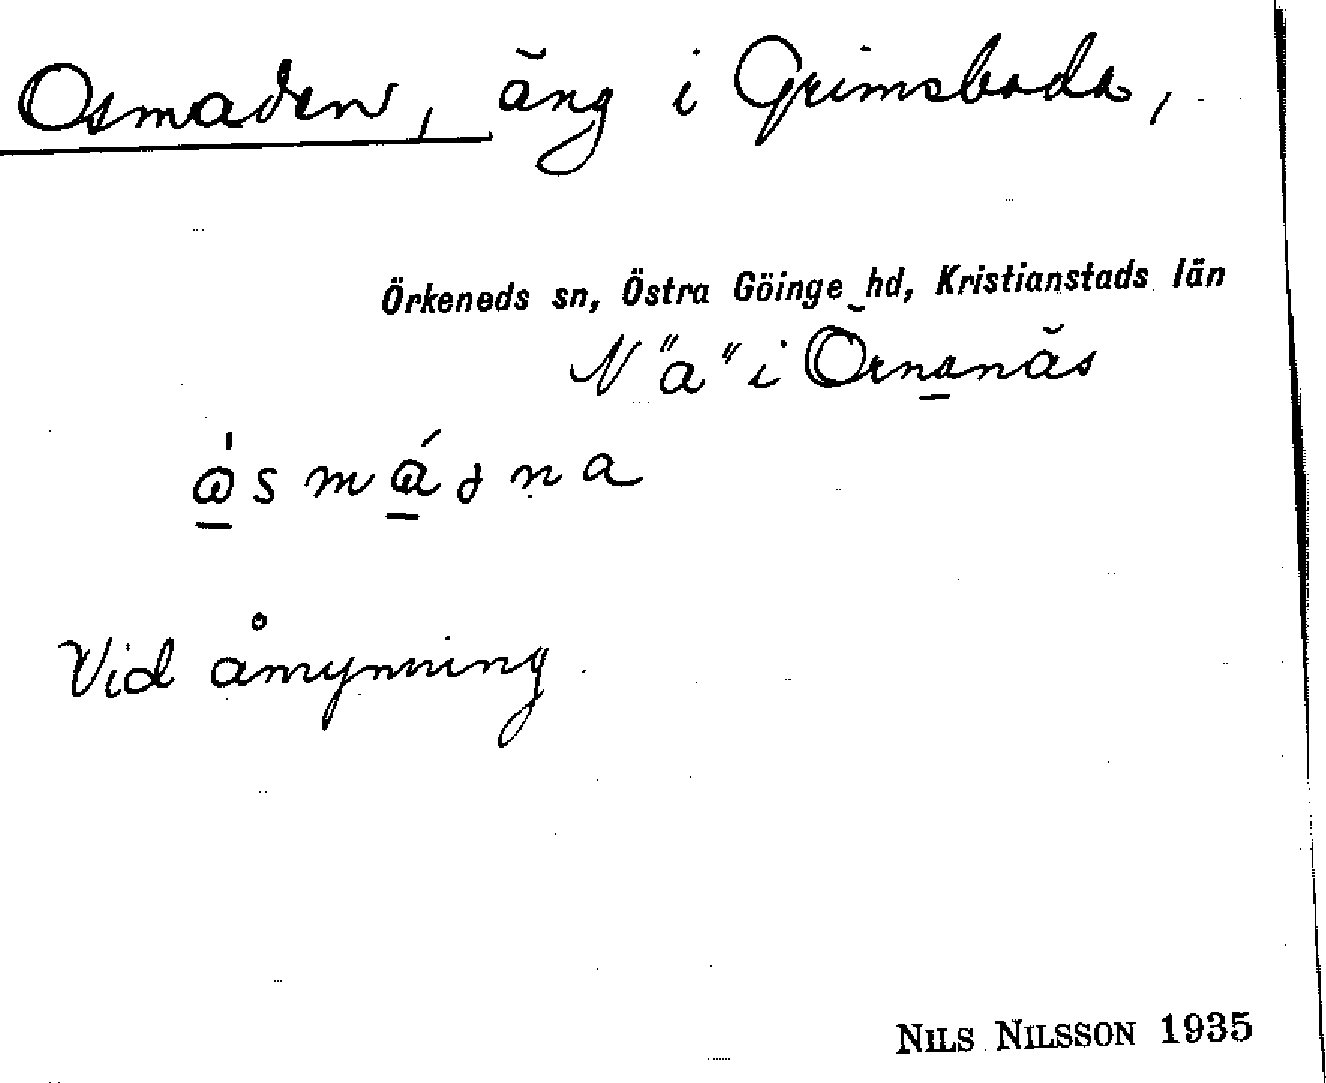 Osmaden, äng i Grimsboda,
Örkeneds sn, Östra Göinge hd, Kristianstads län
N "a" i Örnanäs
Vid åmynning.
NILS NILSSON 1935